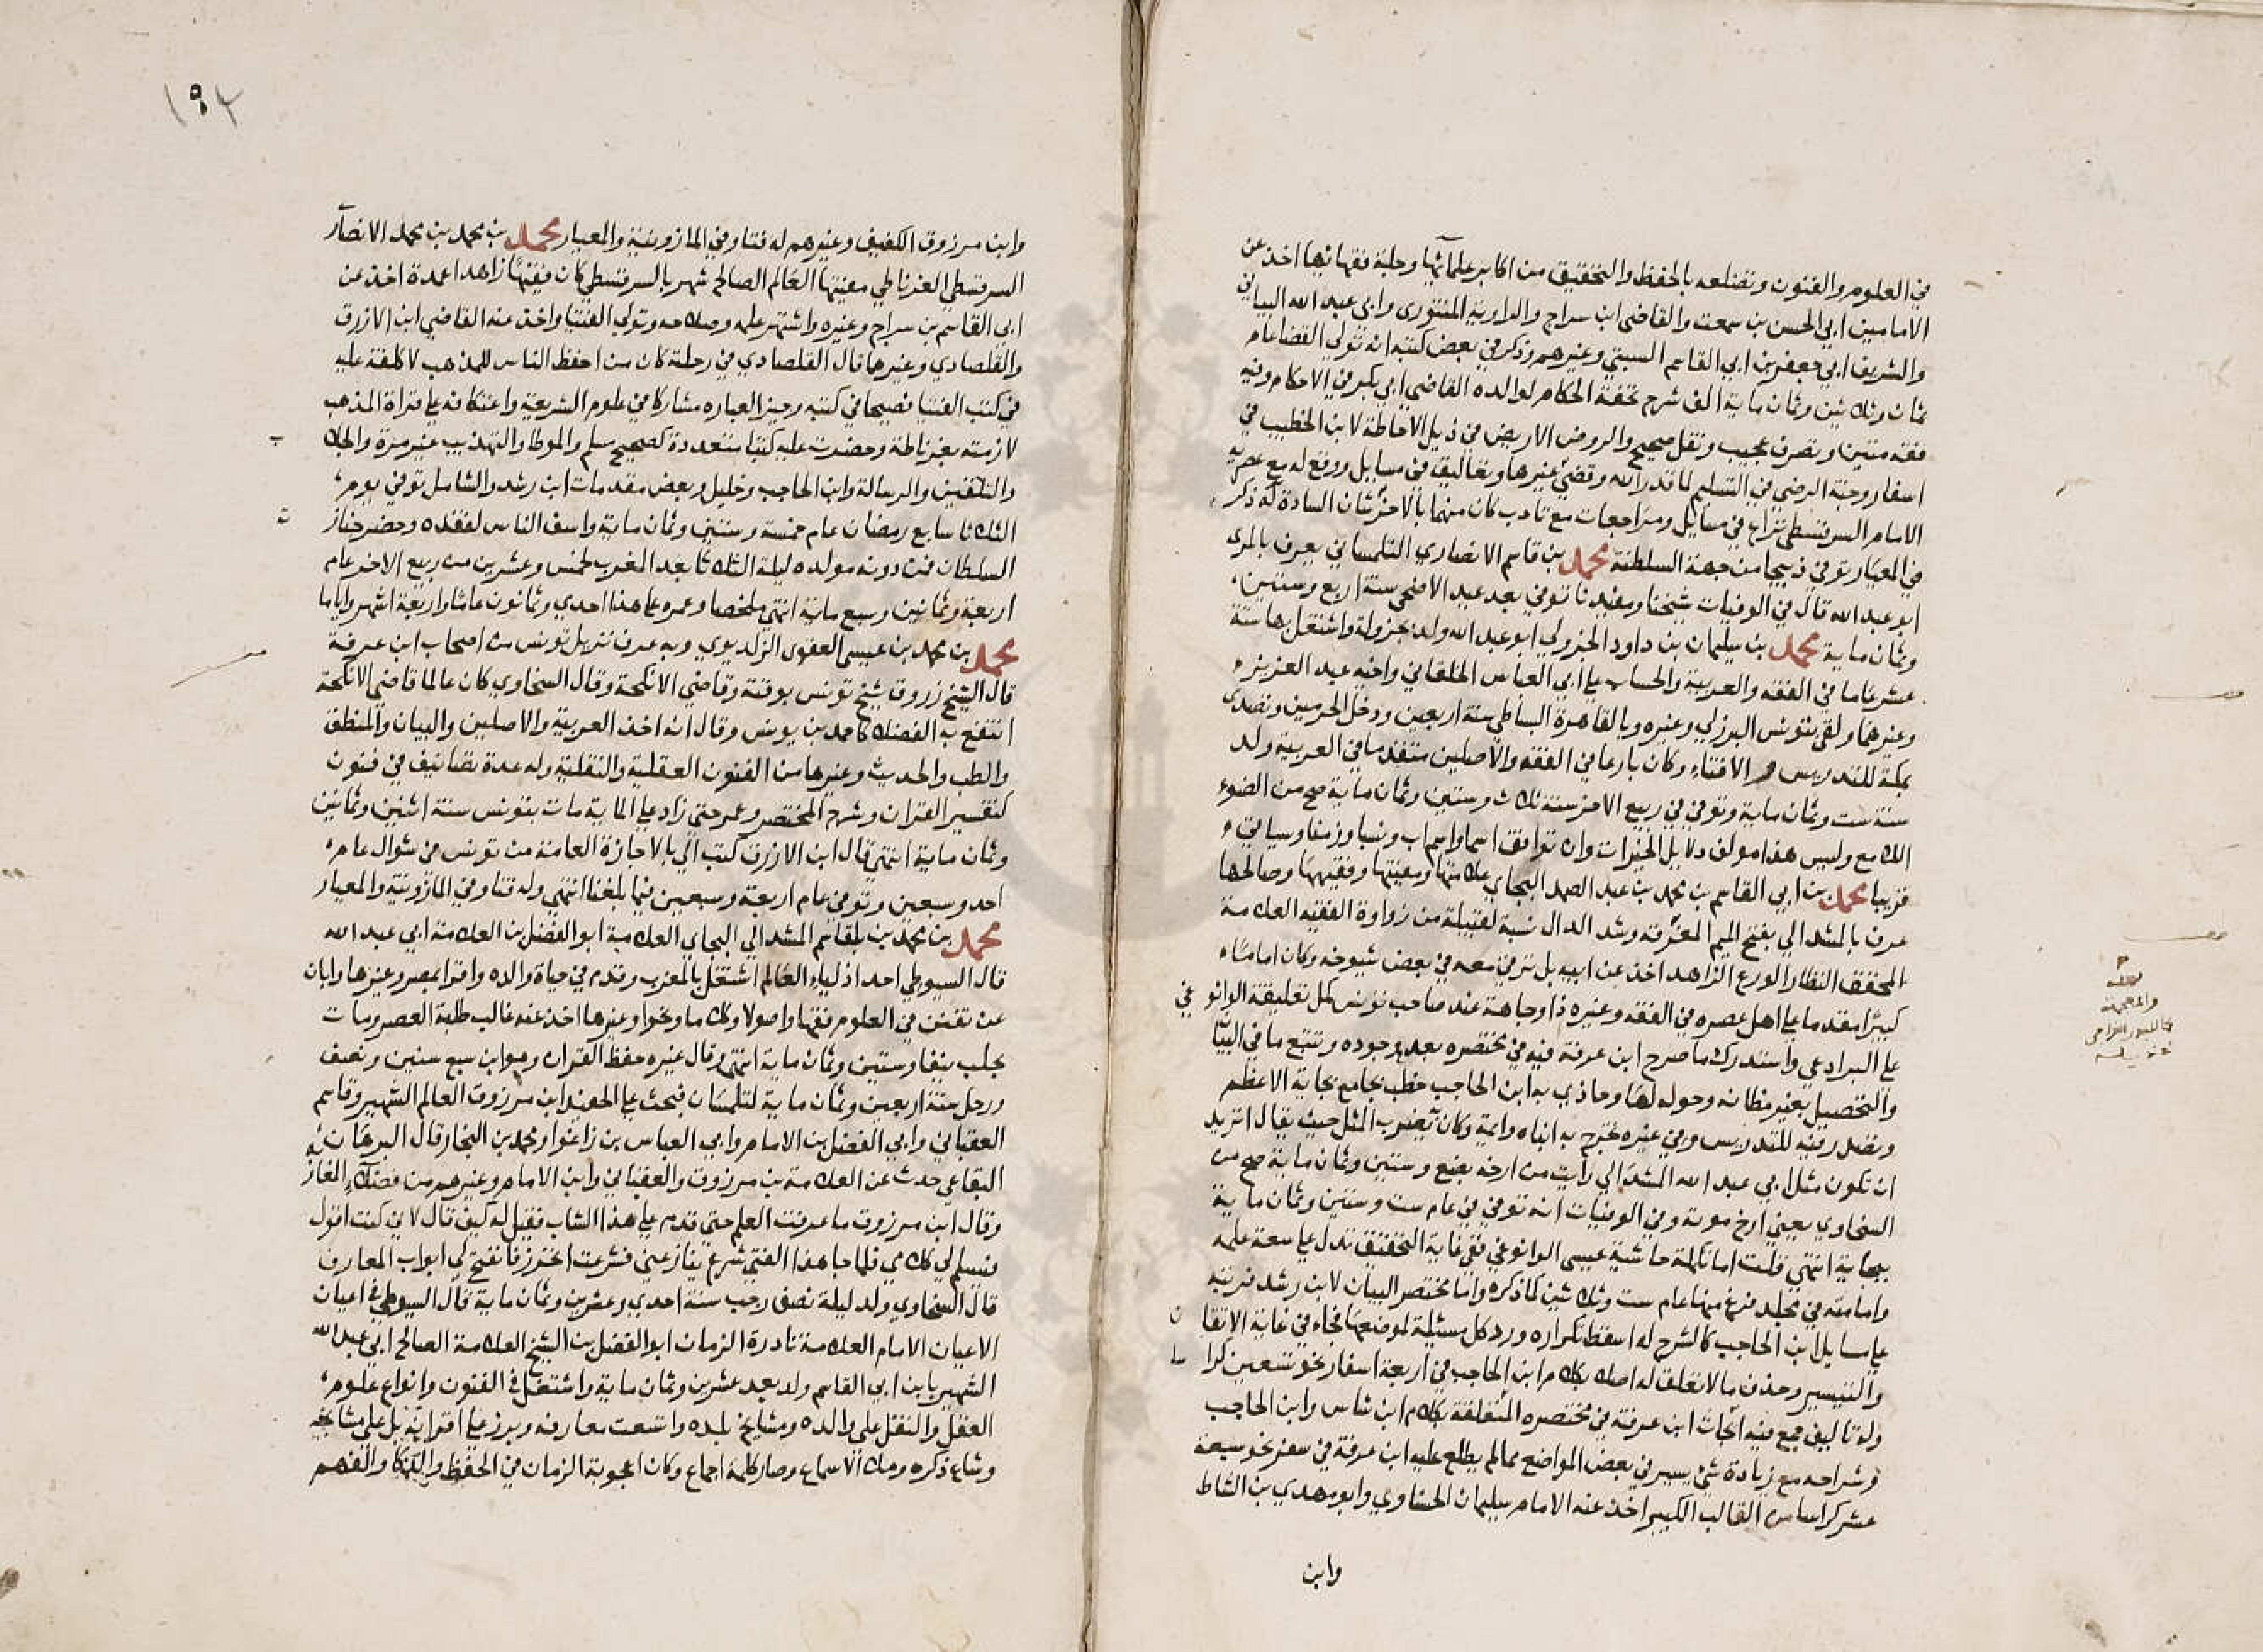 في العلوم والفنون وتضلعه بالحفظ والتحقيق من اكابر علمائها وجلة فقهائها اخذ عن
الامامين ابي الحسن بن سمعت والقاضي ابن سراج والراوية المنتوري وابي عبد الله البياني
والشريف ابي جعفر بن ابي القاسم السبتي وغيرهم وذكر في بعض كتبه انه تولى القضا عام
ثمان وثلاثين وثمان ماية الف شرح تحفة الحكام لوالده القاضي ابي بكر في الاحكام وفيه
فقه متين وتصرف عجيب ونقل صحيح والروض الاريض في ذيل الاحاطة لابن الخطيب في
اسفار وجنة الرضى في التسليم لما قدر الله وقضى وغيرها وتعاليق في مسايل ووقع له مع عصريه
الامام السرقسطي نزاع في مسايل ومراجعات مع تادب كان منهما بالاخر شان السادة له ذكر
في المعيار توفي ذبيحا من جهة السلطنة محمد بن قاسم الانصاري التلمساني يعرف بالمري
ابو عبد الله قال في الوفيات شيخنا ومفيدنا توفي بعد عيد الاضحى سنة اربع وستين
وثمان ماية محمد بن سليمان بن داود الجزولي ابو عبد الله ولد بجزولة واشتغل بها ستة
عشر عاما في الفقه والعربية والحساب على ابي العباس الحلفاني واخيه عبد العزيز
وغيرهما ولقي بتونس البرزلي وغيره وبالقاهرة البساطي سنة اربعين ودخل الحرمين وتصدى
بمكة للتدريس والافتاء وكان بارعا في الفقه والاصلين متقدما في العربية ولد
سنة ست وثمان ماية وتوفي في ربيع الاخر سنة ثلاث وستين وثمان ماية صح من الضوء
اللامع وليس هذا مولف دلايل الخيرات وان توافق اسما واسم اب ونسبا وزمنا وسياتي
قريبا محمد بن ابي القاسم بن محمد بن عبد الصمد البجاي علامتها ومفتيها وفقيهها وصالحها
عرف بالمشدالي بفتح الميم المعجمة وشد الدال نسبة لقبيلة من زواوة الفقيه العلامة
المحقق النظار الورع الزاهد اخذ عن ابيه بل ترقى معه في بعض شيوخه وكان اماما
كبيرا مقدما على اهل عصره في الفقه وغيره ذا وجاهة عند صاحب تونس كمل تعليقة الوانوغي
على البرادعي واستدرك ما صرح ابن عرفة فيه في مختصره بعدم وجوده وتتبع ما في البيان
والتحصيل بغير مظانه وحوله لها وحاذى به ابن الحاجب خطب بجامع بجاية الاعظم
وتصدر فيه للتدريس وفي غيره تخرج به ابناه وايمة وكان يضرب المثل حيث يقال اتريد
ان تكون مثل ابي عبد الله المشدالي رايت من ارخه بضع وستين وثمان ماية صح من
السخاوي يعني ارخ موته وفي الوفيات انه توفي في عام ست وستين وثمان ماية
ببجاية انتهى قلت اما تكملة حاشية عيسى الوانوغي ففي غاية التحقيق تدل على سعة علمه
وامامته في مجلد فرغ منها عام ست وثلاثين كما ذكره واما مختصر البيان لابن رشد فرتبه
على مسايل ابن الحاجب كالشرح له اسقط تكراره ورد كل مسئلة لموضعها فجاء في غاية الاتقان
والتيسير وحذف ما لا تعلق له اصلا بكلام ابن الحاجب في اربعة اسفار نحو تسعين كراسا
وله تاليف جمع فيه ابحاث ابن عرفة في مختصره المتعلقة بكلام ابن شاس وابن الحاجب
وشراحه مع زيادة شئ يسير في بعض المواضع مما لم يطلع عليه ابن عرفة في سفر نحو سبعة
عشر كراسا من القالب الكبير اخذ عنه الامام سليمان الحسناوي وابو مهدي بن الشاط
وابن
١٩٢
وابن مرزوق الكفيف وغيرهم له فتاوي في المازونية والمعيار محمد بن محمد بن محمد الانصار
السرقسطي الغرناطي مفتيها العالم الصالح شهر بالسرقسطي كان فقيها زاهدا عمدة اخذ عن
ابي القاسم بن سراج وغيره واشتهر علمه وصلاحه وتولى الفتيا واخذ عنه القاضي ابن الازرق
والقلصادي وغيرها قال القلصادي في رحلته كان من احفظ الناس للمذهب لا كلفة عليه
في كتب الفتيا نصيحا في كتبه وجيز العباره مشاركا في علوم الشريعة واعتكافه على قراة المذهب
لازمته بغرناطة وحضرت عليه كتبا متعددة كصحيح مسلم والموطا والتهذيب غير مرة والجلاب
والتلقين والرسالة وابن الحاجب وخليل وبعض مقدمات ابن رشد والشامل توفي يوم
الثلاثا سابع رمضان عام خمسة وستين وثمان ماية واسف الناس لفقده وحضر جنازت
السلطان فمن دونه مولده ليلة الثلاثا بعد المغرب لخمس وعشرين من ربيع الاخر عام
اربعة وثمانين وسبع ماية انتهى ملخصا وعمره على هذا احدي وثمانون عاما واربعة اشهر واياما
محمد بن محمد بن عيسى العقوى الزلديوي وبه عرف نزيل تونس من اصحاب ابن عرفة
قال الشيخ زروق شيخ تونس بوقته وقاضي الانكحة وقال السخاوي كان عالما قاضي الانكحة
انتفع به الفضلا كاحمد بن يونس وقال انه اخذ العربية والاصلين والبيان والمنطق
والطب والحديث وغيرها من الفنون العقلية والنقلية وله عدة تصانيف في فنون
كتفسير القران وشرح المختصر وعمر حتى زاد على الماية مات بتونس سنة اثنين وثمانين
وثمان ماية انتهى قال ابن الازرق كتب الي بالاجازة العامة من تونس في شوال عام
احد وسبعين وتوفي عام اربعة وسبعين فيما بلغنا انتهى وله فتاوي في المازونية والمعيار
محمد بن محمد بن بلقاسم المشدالي البجاي العلامة ابو الفضل بن العلامة ابي عبد الله
قال السيوطي احد اذكياء العالم اشتغل بالمغرب وتقدم في حياة والده واقرا بمصر وغيرها وابان
عن تفنن في العلوم فقها واصولا وكلاما ونحوا وغيرها اخذ عنه غالب طلبة العصر ومات
بحلب بنيف وستين وثمان ماية انتهى وقال غيره حفظ القران وهو ابن سبع سنين ونصف
ورحل سنة اربعين وثمان ماية لتلمسان فبحث على الحفيد ابن مرزوق العالم الشهير وقاسم
العقباني وابي الفضل بن الامام وابي العباس بن زاغوا ومحمد بن النجار وقال البرهان
البقاعي حدث عن العلامة بن مرزوق والعقباني وابن الامام وغيرهم من فضلاء المغارب
وقال ابن مرزوق ما عرفت العلم حتى قدم علي هذا الشاب فقيل له كيف قال لاني كنت اقول
فيسلم لي كلامي فلما جا هذا الفتى شرع ينازعني فشرعت احترز فانفتح لي ابواب المعارف
قال السخاوي ولد ليلة نصف رجب سنة احدي وعشرين وثمان ماية قال السيوطي في اعيان
الاعيان الامام العلامة نادرة الزمان ابو الفضل بن الشيخ العلامة الصالح ابي عبد الله
الشهير بابن ابي القاسم ولد بعد عشرين وثمان ماية واشتغل في الفنون وانواع علوم
العقل والنقل على والده ومشايخ بلده واتسعت معارفه وبرز على اقرانه بل على مشايخه
وشاع ذكره وملا الاسماع وصار كلمة اجماع وكان اعجوبة الزمان في الحفظ والذكا والفهم